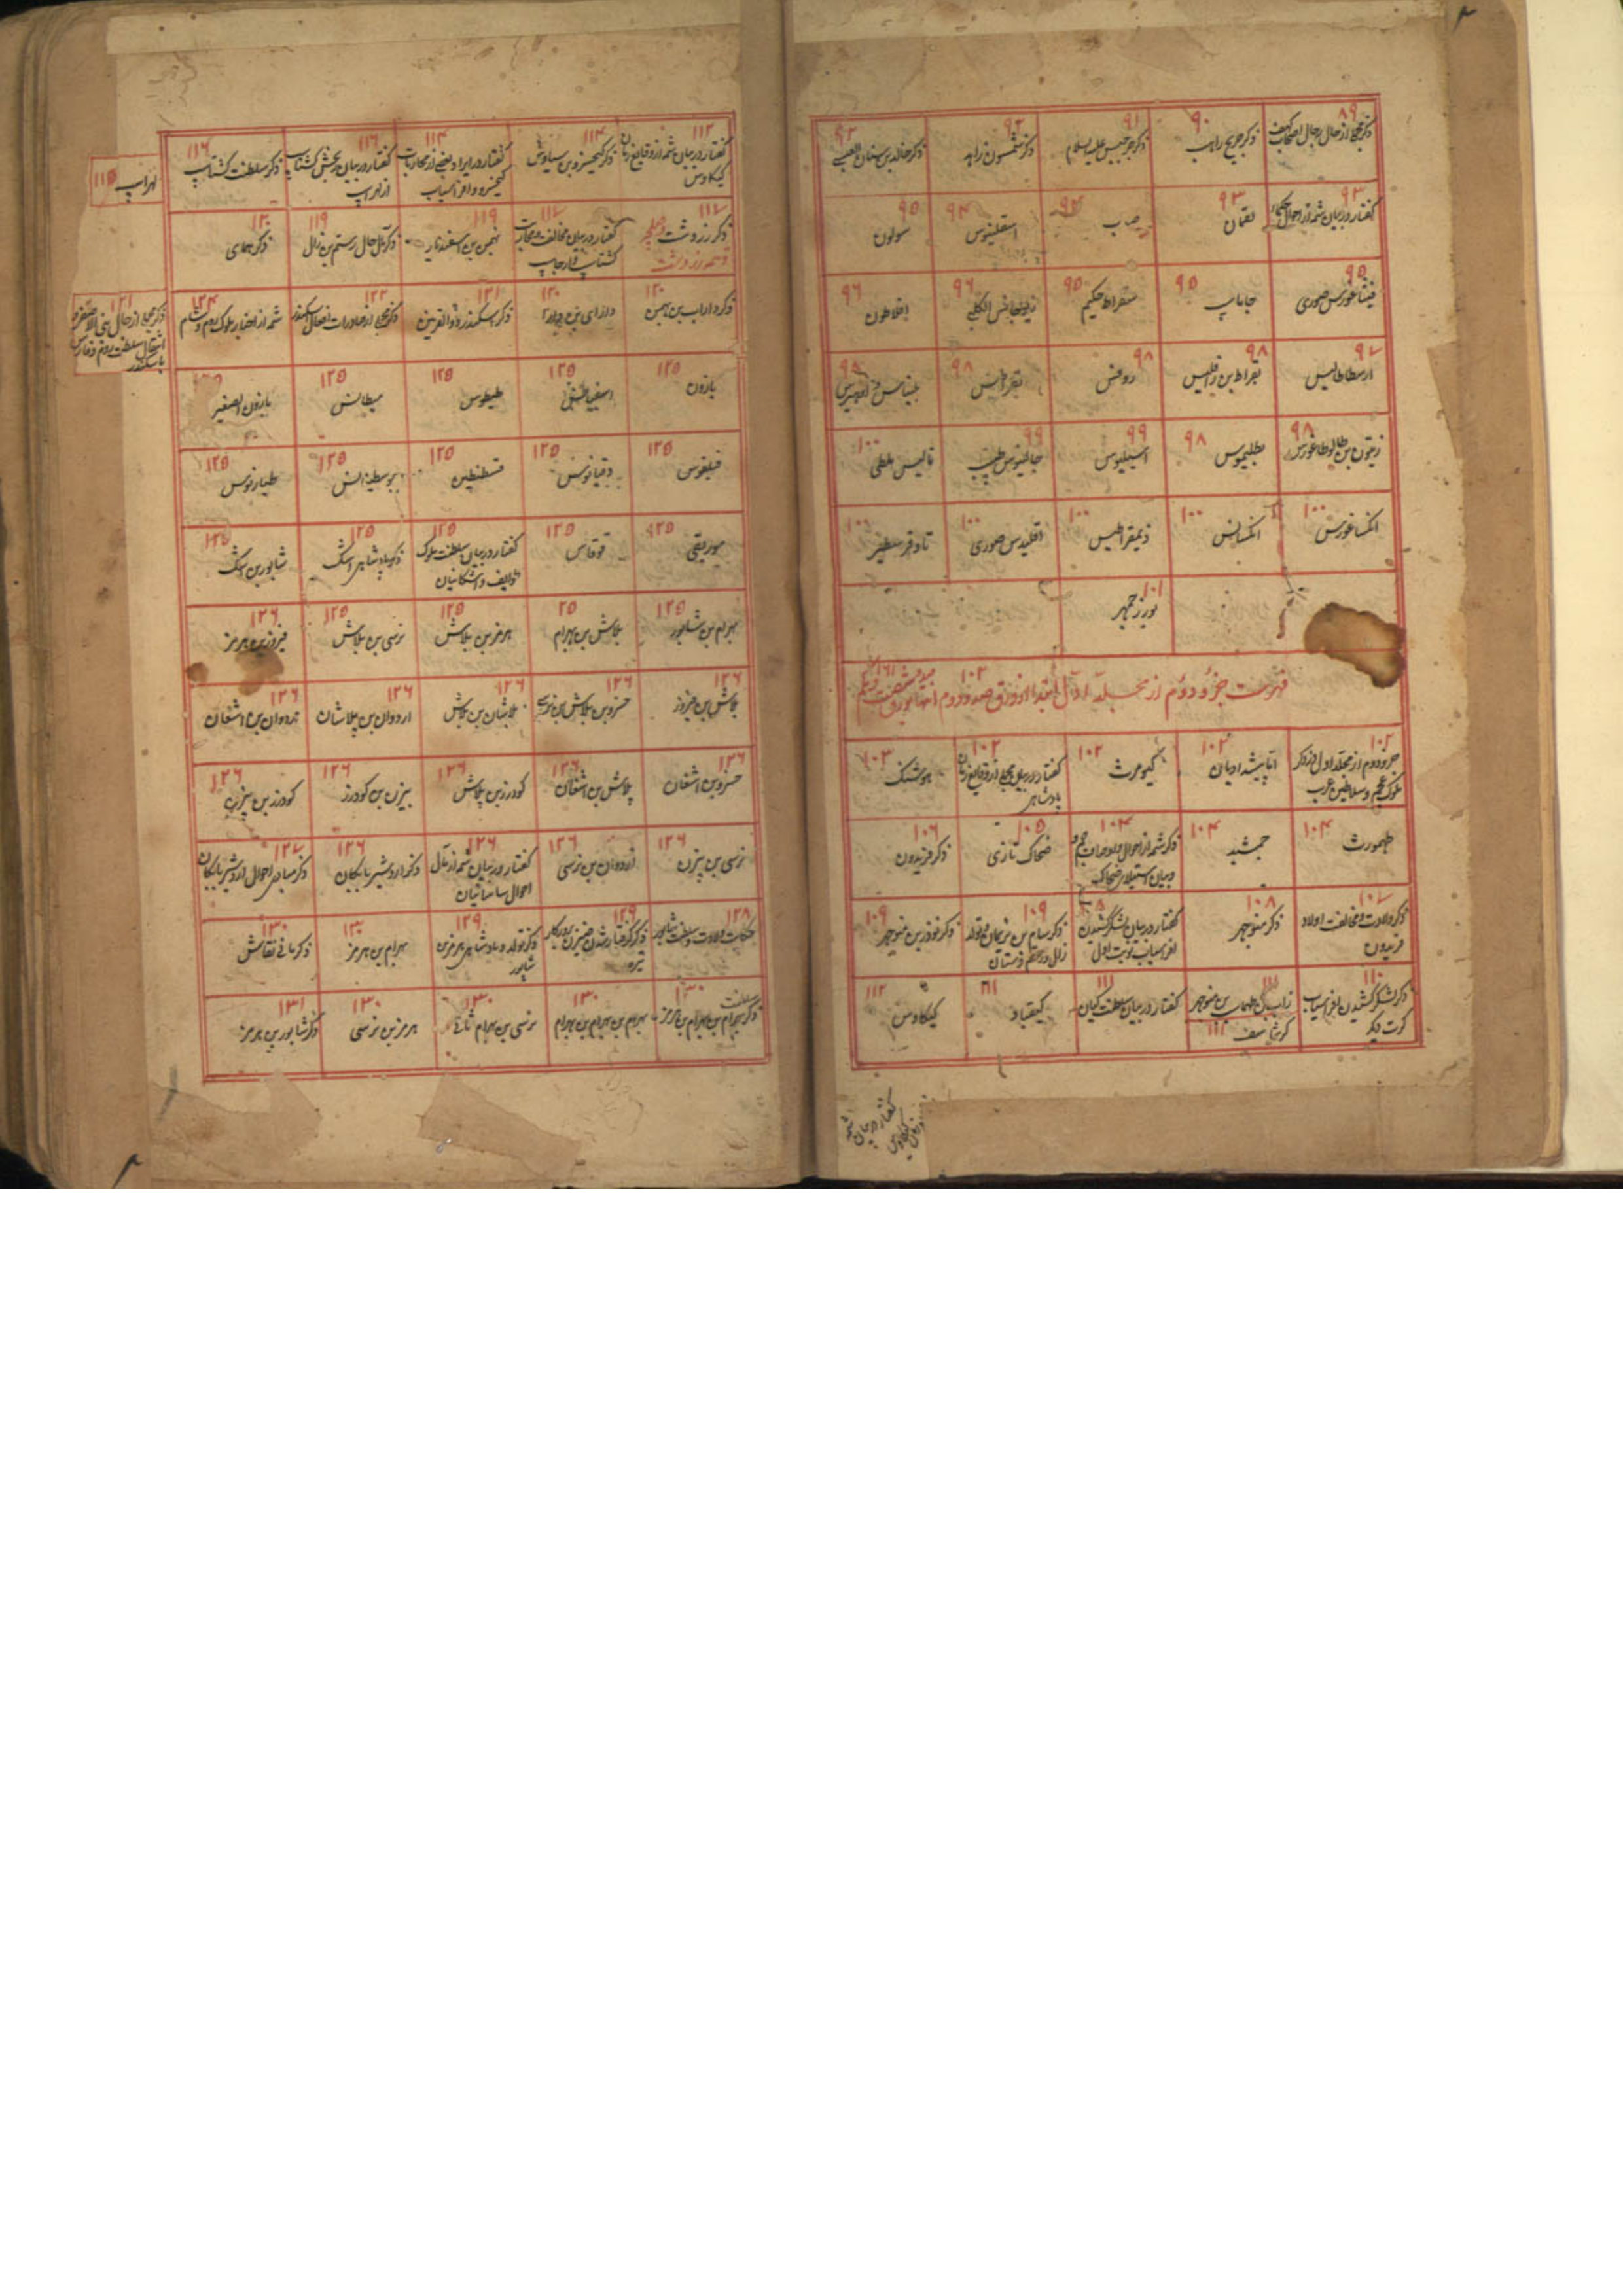 ۸۹ ذکر مجملی از حال رجال اصحاب کهف
۹۰ ذکر جریح راهب
۹۱ ذکر جرجیس علیه السلام
۹۲ ذکر شمسون زاهد
۹۲ ذکر خالد بن سنان العبسی
۹۳ گفتار در بیان شمه از احوال حکما
۹۳ لقمان
صاب
۹۴ اسقلینوس
۹۵ سولون
۹۵ فیثاغورس صوری
۹۵ جاماسپ
۹۵ سقراط حکیم
۹۶ دیوجانس الکلبی
۹۶ افلاطون
۹۷ ارسطاطالیس
۹۸ بقراط بن راقلیس
۹۸ روفس
۹۸ بقراطیس
۹۸ بلیناس
۹۸
۹۸ بطلیموس
۹۹
۹۹ جالینوس طبیب
۱۰۰ تالیس ملطی
۱۰۰ انکساغورس
۱۰۰ انکسانس
۱۰۰ ذیمقراطیس
۱۰۰ اقلیدس صوری
۱۰۱
۱۰۱ بوزرجمهر
فهرست جزو دوم از مجلد اول ابتدا از ورق صد و دوم ۱۰۲ انتها بورق صد و شصت و یکم ۱۶۱
۱۰۲ جزو دوم از مجلد اول در ذکر
ملوک عجم و سلاطین عرب
۱۰۲ اما پیشدادیان
۱۰۲ کیومرث
۱۰۲ گفتار در بیان مجملی از وقایع زمان
پادشاهی
۱۰۳ هوشنک
۱۰۴ طهمورث
۱۰۴ جمشید
۱۰۴ ذکر شمه از احوال
و بیان استیلای ضحاک
۱۰۵ ضحاک تازی
۱۰۶ ذکر فریدون
۱۰۷ ذکر ولادت و مخالفت اولاد
فریدون
۱۰۸ ذکر منوچهر
۱۰۸ گفتار در بیان لشکر کشیدن
افراسیاب نوبت اول
۱۰۹ ذکر سام بن نریمان و تولد
زال و رستم دستان
۱۰۹ ذکر نوذر بن منوچهر
۱۱۰ ذکر لشکر کشیدن افراسیاب
کرت دیگر
۱۱۱ زاب بن طهماسب بن منوچهر
کرشاسف ۱۱۱
۱۱۱ گفتار در بیان سلطنت کیان
۱۱۱ کیقباد
۱۱۲ کیکاوس
گفتار در بیان شمه
زمان کیکاوس
۱۱۲ گفتار در بیان شمه از وقایع زمان
کیکاوس
۱۱۳ ذکر کیخسرو بن سیاوش
۱۱۴ گفتار در ایراد بعضی از محاربات
کیخسرو و افراسیاب
۱۱۶ گفتار در بیان رنجش گشتاسپ
از لهراسپ
۱۱۶ ذکر سلطنت گشتاسپ
لهراسپ ۱۱۵
۱۱۷ ذکر زردشت حکیم
۱۱۷ گفتار در بیان مخالفت و محاربت
گشتاسپ و ارجاسپ
۱۱۹ بهمن بن اسفندیار
۱۱۹ ذکر مآل حال رستم بن زال
۱۲۰ ذکر همای
۱۲۰ ذکر داراب بن بهمن
۱۲۰ دارای بن داراب
۱۲۱ ذکر اسکندر ذوالقرنین
۱۲۳ ذکر مجملی از صادرات افعال اسکندر
۱۲۴ شمه از اخبار ملوک روم و شام
۱۲۱ ذکر مجملی از حال بنی الاصفر و
انتقال سلطنت روم و فارس
باسکندر
۱۲۵ نارون
۱۲۵
۱۲۵ طیطوس
۱۲۵ میطانس
نارون الصغیر
۱۲۵ فیلقوس
۱۲۵ دقیانوس
۱۲۵ قسطنطین
۱۲۵
۱۲۵ طیاریوس
۱۲۵ موریقی
۱۲۵ قوقاس
۱۲۵ گفتار در بیان سلطنت ملوک
طوایف و اشکانیان
۱۲۵ ذکر پادشاهی اشک
۱۲۵ شاپور بن اشک
۱۲۵ بهرام بن شاپور
۲۵ بلاش بن بهرام
۱۲۵ هرمز بن بلاش
۱۲۵ نرسی بن بلاش
۱۲۶ فیروز بن هرمز
۱۲۶ بلاش بن فیروز
۱۲۶ خسرو بن بلاش بن نرسی
۱۲۶ بلاشان بن بلاش
۱۲۶ اردوان بن بلاشان
۱۲۶ اردوان بن اشغان
۱۲۶ خسرو بن اشغان
۱۲۶ بلاش بن اشغان
۱۲۶ کودرز بن بلاش
۱۲۶ بیژن بن کودرز
۱۲۶ کودرز بن بیژن
۱۲۶ نرسی بن بیژن
۱۲۶ اردوان بن نرسی
۱۲۶ گفتار در بیان شمه از مآل
احوال ساسانیان
۱۲۶ ذکر اردشیر بابکان
۱۲۷ ذکر مبادی احوال اردشیر بابکان
۱۲۸ حکایت ولادت و سلطنت شاپور
۱۲۹ ذکر گرفتار شدن ضیزن
تیره
۱۲۹ ذکر تولد و پادشاهی هرمز بن
شاپور
۱۳۰ بهرام بن هرمز
۱۳۰ ذکر مانی نقاش
۱۳۰ ذکر سلطنت بهرام بن بهرام بن هرمز
۱۳۰ بهرام بن بهرام بن بهرام
۱۳۰ نرسی بن بهرام ثانی
۱۳۰ هرمز بن نرسی
۱۳۱ ذکر شاپور بن هرمز